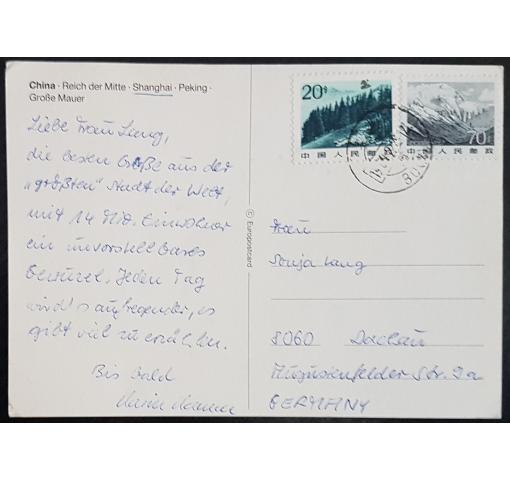 China · Reich der Mitte · Shanghai · Peking ·
Große Mauer
Liebe Frau Lang,
die besten Grüße aus der
„größten" Stadt der Welt,
mit 14 Mio. Einwohner
ein unvorstellbares
Gewusel. Jeden Tag
wird's aufregender, es
gibt viel zu erzählen.
Bis bald
© Europostcard
20分
中国人民邮政
70分
中国人民邮政
Frau
Sonja Lang
8060 Dachau
Augustenfelder Str. 9a
GERMANY